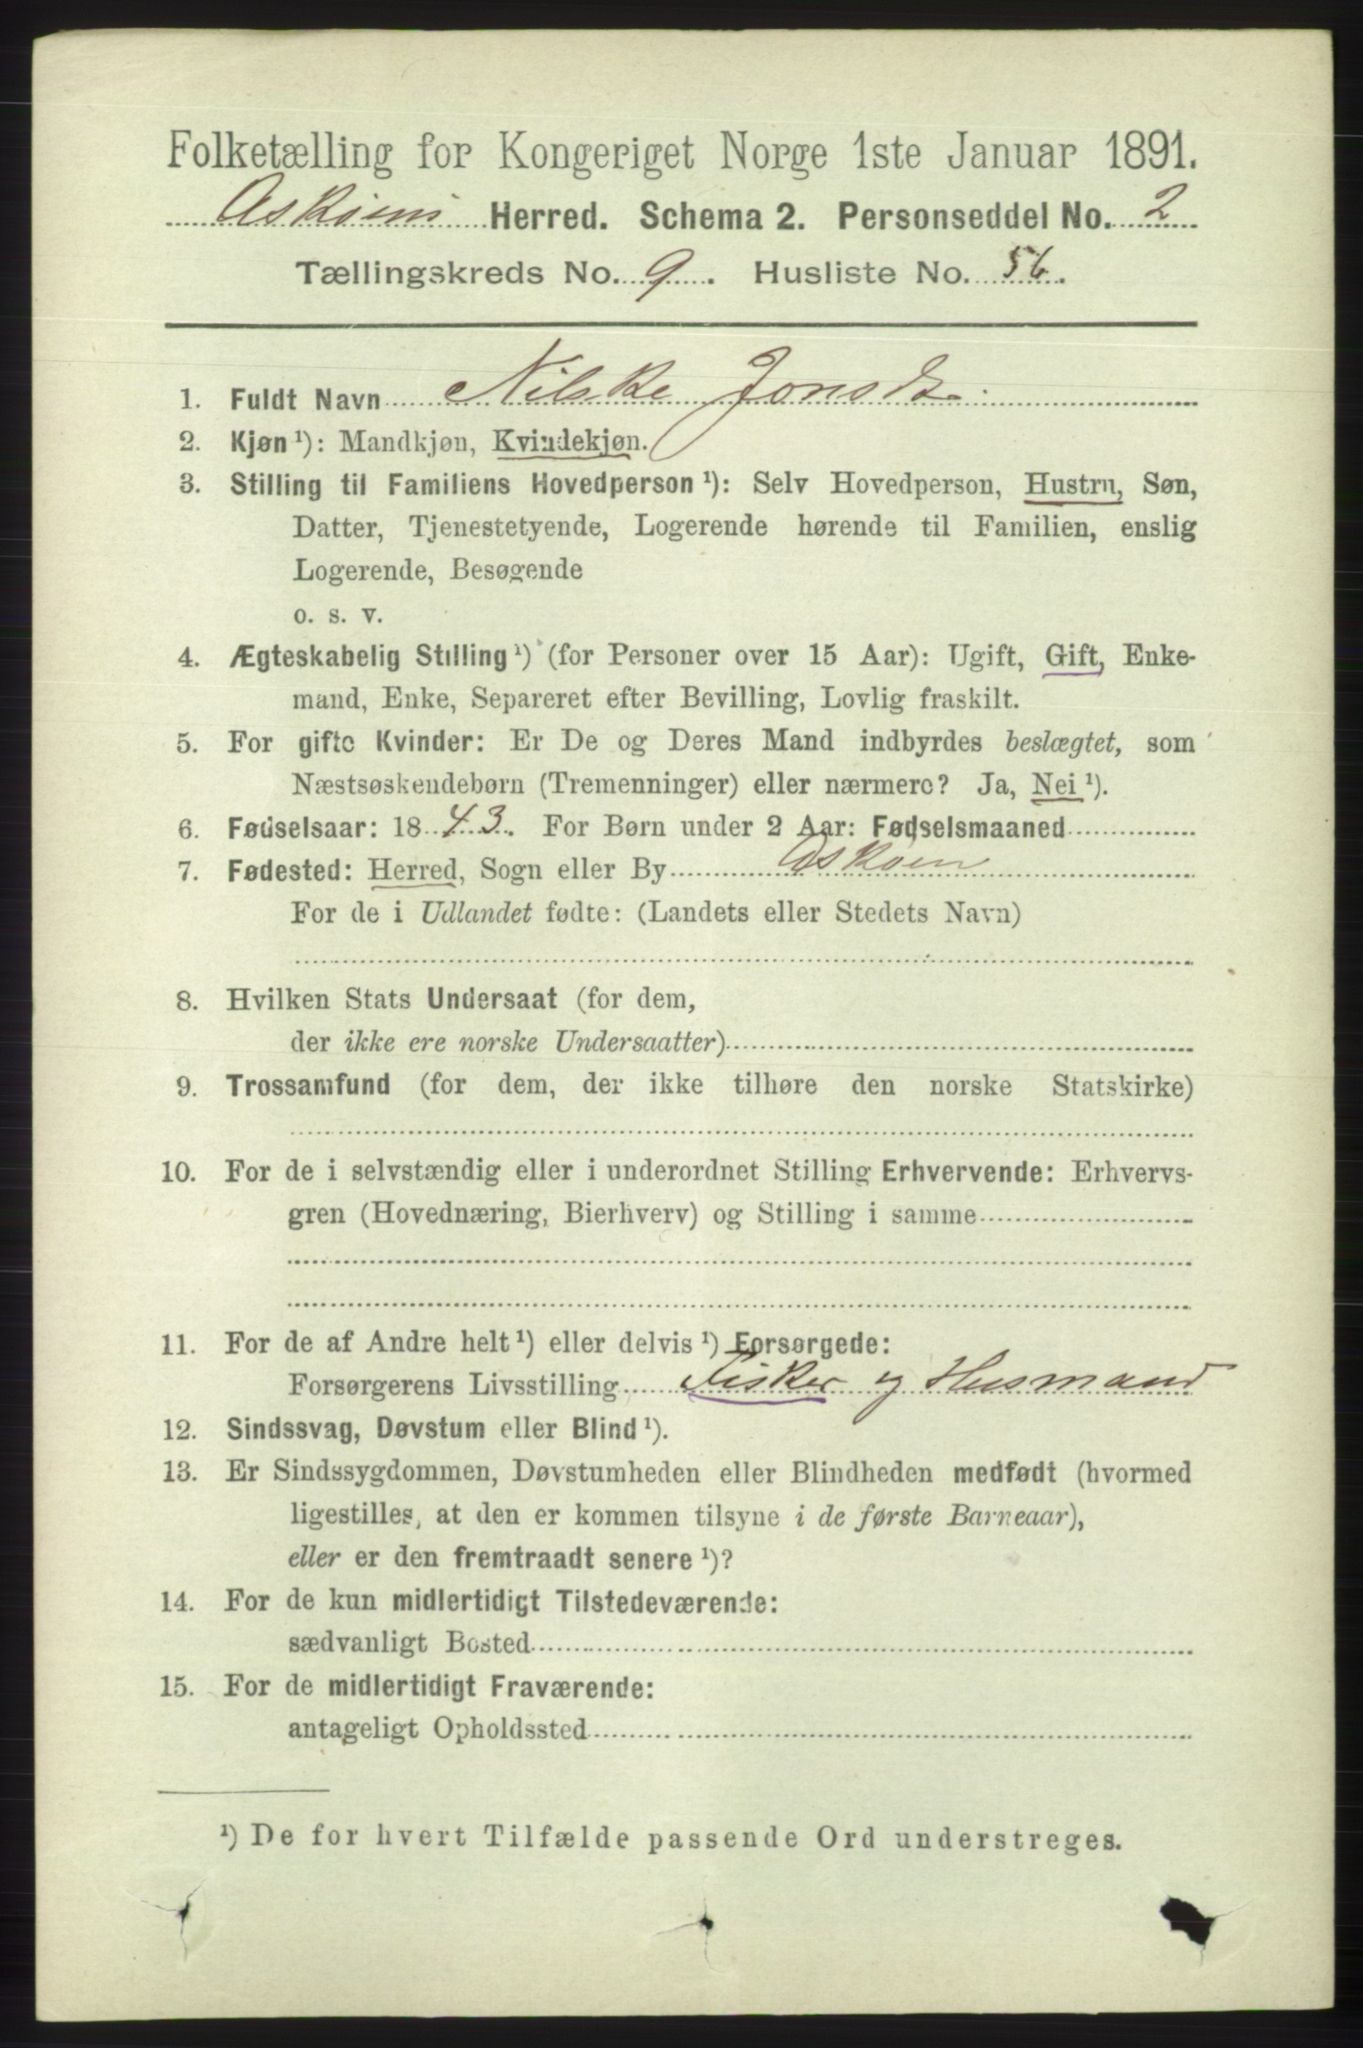 Folketælling for Kongeriget Norge 1ste Januar 1891.
Askøens Herred. Schema 2. Personseddel No. 2
Tællingskreds No. 9. Husliste No. 56.
1. Fuldt Navn Nilske Jonsdr.
2. Kjøn ¹): Mandkjøn, Kvindekjøn.
3. Stilling til Familiens Hovedperson ¹): Selv Hovedperson, Hustru, Søn,
Datter, Tjenestetyende, Logerende hørende til Familien, enslig
Logerende, Besøgende
o. s. v.
4. Ægteskabelig Stilling ¹) (for Personer over 15 Aar): Ugift, Gift, Enke-
mand, Enke, Separeret efter Bevilling, Lovlig fraskilt.
5. For gifte Kvinder: Er De og Deres Mand indbyrdes beslægtet, som
Næstsøskendebørn (Tremenninger) eller nærmere? Ja, Nei ¹).
6. Fødselsaar: 1843. For Børn under 2 Aar: Fødselsmaaned
7. Fødested: Herred, Sogn eller By Askøen
For de i Udlandet fødte: (Landets eller Stedets Navn)
8. Hvilken Stats Undersaat (for dem,
der ikke ere norske Undersaatter)
9. Trossamfund (for dem, der ikke tilhøre den norske Statskirke)
10. For de i selvstændig eller i underordnet Stilling Erhvervende: Erhvervs-
gren (Hovednæring, Bierhverv) og Stilling i samme
11. For de af Andre helt ¹) eller delvis ¹) Forsørgede:
Forsørgerens Livsstilling Fisker og Husmand
12. Sindssvag, Døvstum eller Blind ¹).
13. Er Sindssygdommen, Døvstumheden eller Blindheden medfødt (hvormed
ligestilles, at den er kommen tilsyne i de første Barneaar),
eller er den fremtraadt senere ¹)?
14. For de kun midlertidigt Tilstedeværende:
sædvanligt Bosted
15. For de midlertidigt Fraværende:
antageligt Opholdssted
¹) De for hvert Tilfælde passende Ord understreges.